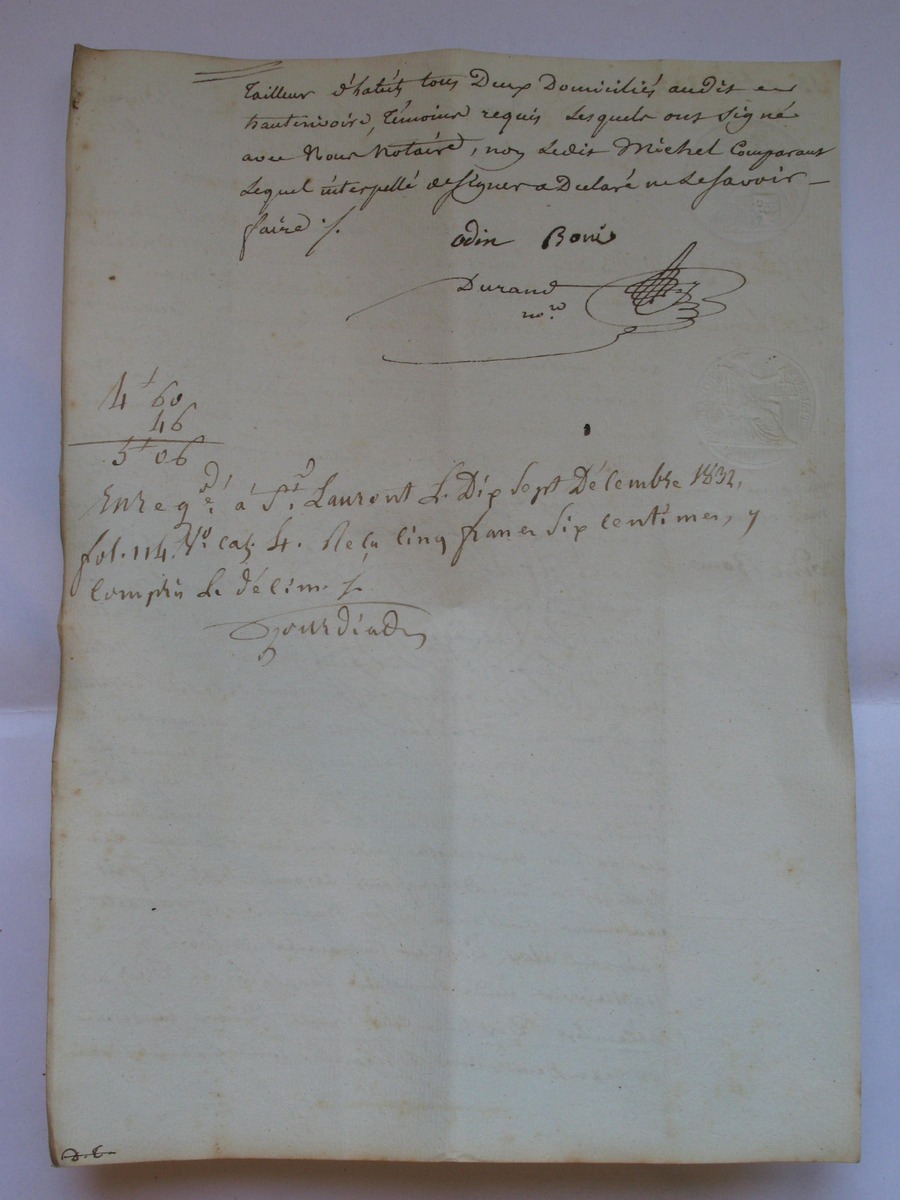 tailleur d'habits tous Deux Domiciliés audit
hauterivoire, témoins requis Lesquels ont signé
avec Nous Notaire, non Ledit Michel Comparant
Lequel interpellé de signer a Declaré ne Le savoir
faire ./.
odin Boni
Durand
nore
4f 60
46
5f 06
Enregé à St. Laurent Le Dix Sept Décembre 1832,
fol. 114. Vo. cas. 4. Reçu Cinq francs Six centimes, y
Compris Le décime ./.